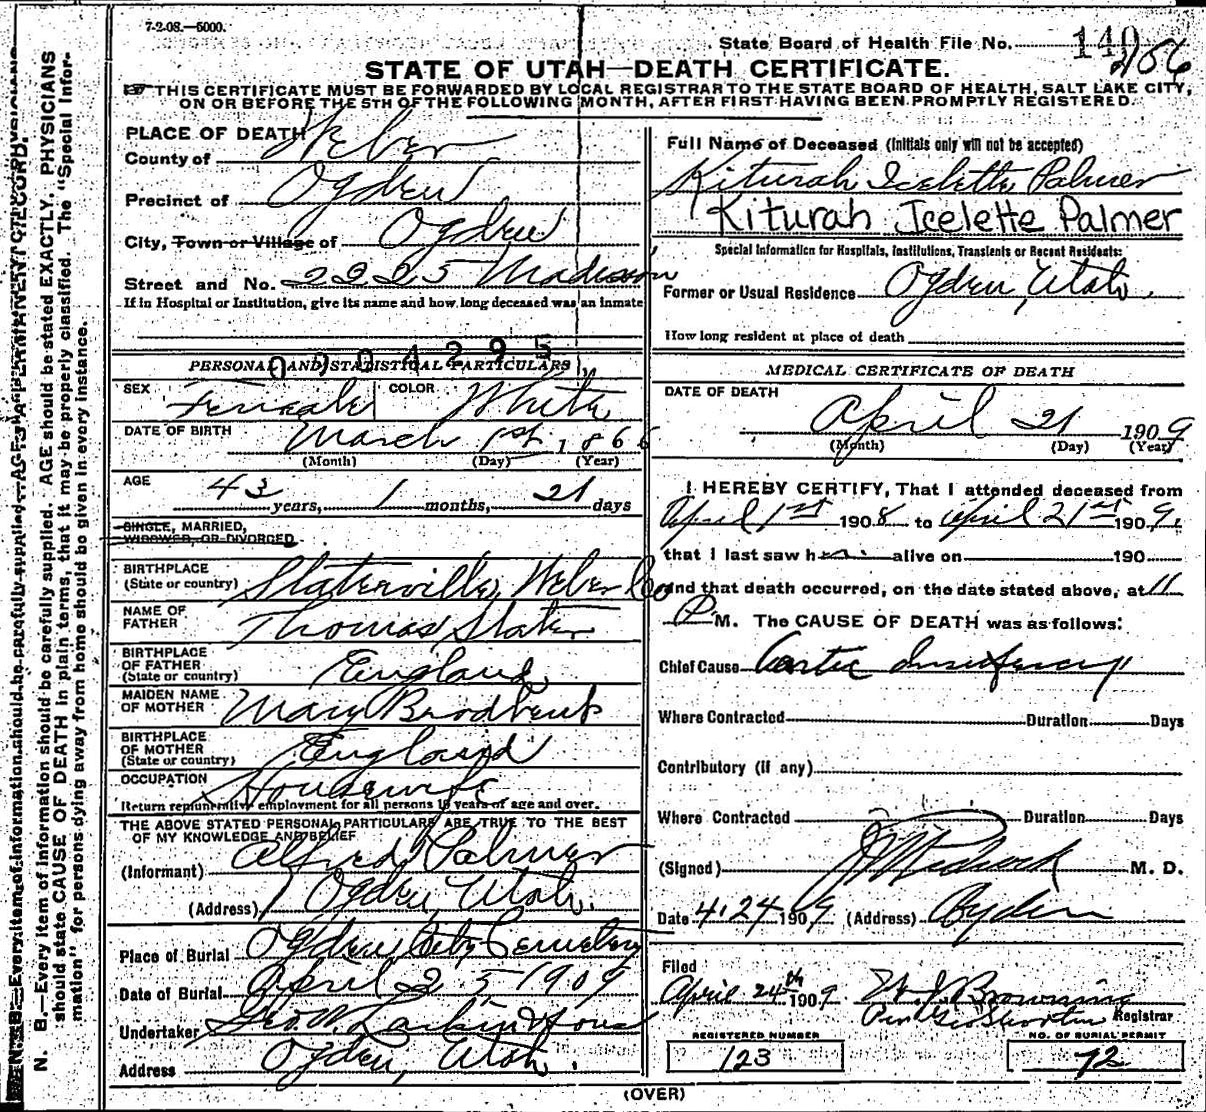 7-2-08.—5000.
State Board of Health File No. 140
STATE OF UTAH—DEATH CERTIFICATE.
THIS CERTIFICATE MUST BE FORWARDED BY LOCAL REGISTRAR TO THE STATE BOARD OF HEALTH, SALT LAKE CITY,
ON OR BEFORE THE 5TH OF THE FOLLOWING MONTH, AFTER FIRST HAVING BEEN PROMPTLY REGISTERED.
N. B.—Every item of information should be carefully supplied. AGE should be stated EXACTLY. PHYSICIANS
should state CAUSE OF DEATH in plain terms, that it may be properly classified. The "Special Infor-
mation" for persons dying away from home should be given in every instance.
PLACE OF DEATH
County of Weber
Precinct of Ogden
City, Town or Village of Ogden
Street and No. 2325 Madison
If in Hospital or Institution, give its name and how long deceased was an inmate
0904295
PERSONAL AND STATISTICAL PARTICULARS
SEX Female COLOR White
DATE OF BIRTH March 1st 1866
(Month) (Day) (Year)
AGE 43 years, 1 months, 21 days
SINGLE, MARRIED,
WIDOWED, OR DIVORCED
BIRTHPLACE
(State or country) Slaterville, Weber Co
NAME OF
FATHER Thomas Slater
BIRTHPLACE
OF FATHER
(State or country) England
MAIDEN NAME
OF MOTHER Mary Brodbent
BIRTHPLACE
OF MOTHER
(State or country) England
OCCUPATION Housewife
Return remunerative employment for all persons 10 years of age and over.
THE ABOVE STATED PERSONAL PARTICULARS ARE TRUE TO THE BEST
OF MY KNOWLEDGE AND BELIEF
(Informant) Alfred Palmer
(Address) Ogden Utah.
Place of Burial Ogden City Cemetery
Date of Burial April 25 1909
Undertaker Geo. W. Larkin & Sons
Address Ogden, Utah.
Full Name of Deceased (Initials only will not be accepted)
Kiturah Icelette Palmer
Kiturah Icelette Palmer
Special Information for Hospitals, Institutions, Transients or Recent Residents:
Former or Usual Residence Ogden, Utah.
How long resident at place of death
MEDICAL CERTIFICATE OF DEATH
DATE OF DEATH
April 21 1909
(Month) (Day) (Year)
I HEREBY CERTIFY, That I attended deceased from
April 1st 1908 to April 21st 1909,
that I last saw her alive on 190
and that death occurred, on the date stated above, at 11
P M. The CAUSE OF DEATH was as follows:
Chief Cause Aortic Insufficiency
Where Contracted Duration Days
Contributory (if any)
Where Contracted Duration Days
(Signed) M. D.
Date 4.24 1909 (Address) Ogden
Filed
April 24th 1909. Browning
Registrar
REGISTERED NUMBER
123
NO. OF BURIAL PERMIT
72
(OVER)